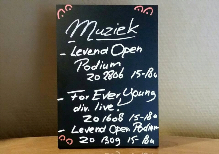 Muziek
- Levend Open
Podium
zo 2806 15-18u
- For Ever Young
div. live!
zo 1608 15-18u
- Levend Open Podium
zo 1309 15-18u